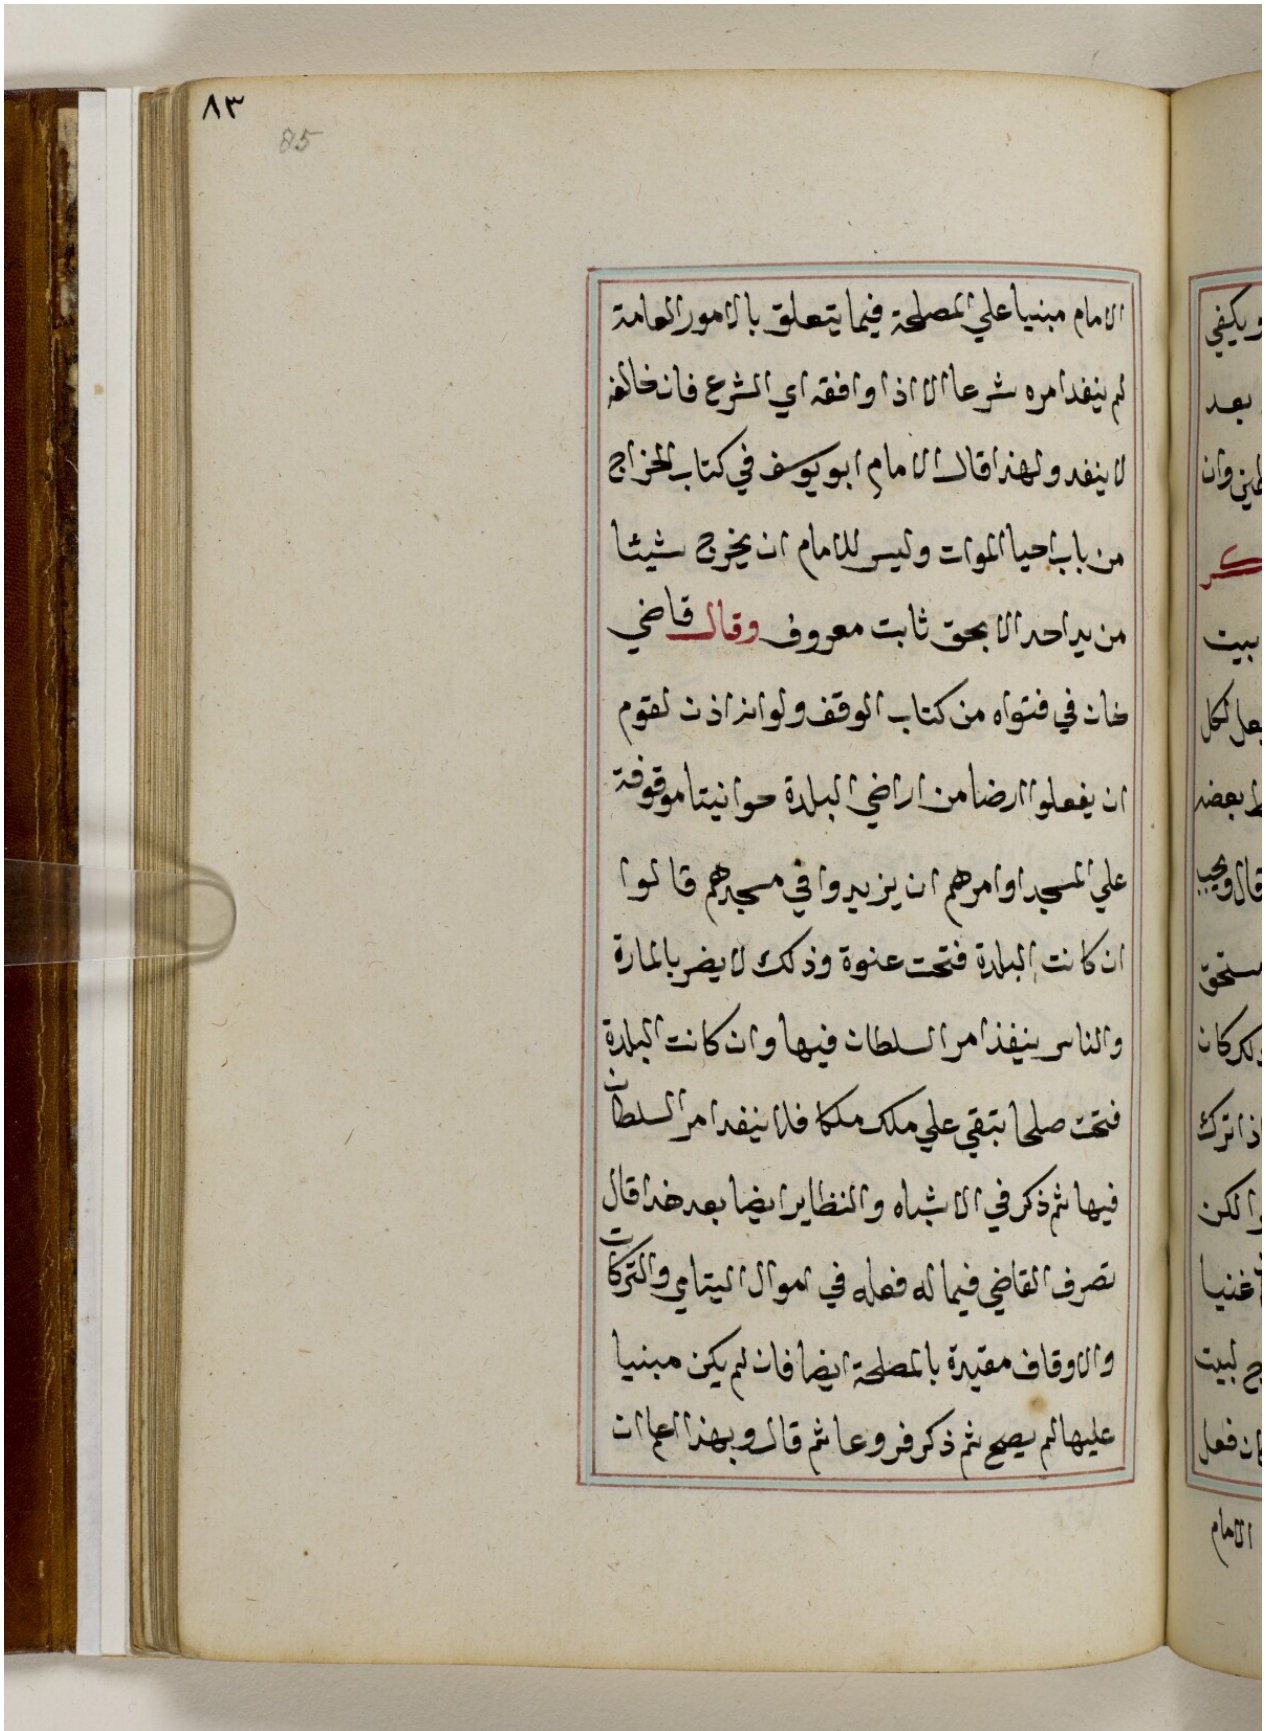 ٨٣
85
الامام مبنيا علي المصلحة فيما يتعلق بالامور العامة
لم ينفد امره شرعا الا اذا وافقه اي الشرع فان خالفه
لا ينفد ولهذا قال الامام ابو يوسف في كتاب الخراج
من باب احيا الموات وليس للامام ان يخرج شيئا
من يد احد الا بحق ثابت معروف وقال قاضي
خان في فتواه من كتاب الوقف ولو انه اذن لقوم
ان يفعلوا ارضا من اراضي البلدة حوانيتا موقوفة
علي المسجد او امرهم ان يزيدوا في مسجدهم قالوا
ان كانت البلدة فتحت عنوة وذلك لا يضر بالمارة
والناس ينفذ امر السلطان فيها وان كانت البلدة
فتحت صلحا تبقي علي ملك ملكا فلا ينفد امر السلطان
فيها ثم ذكر في الاشباه والنظاير ايضا بعد هذا قال
تصرف القاضي فيما له فعله في اموال اليتامي والتركات
والاوقاف مقيدة بالمصلحة ايضا فان لم يكن مبنيا
عليها لم يصح ثم ذكر فروعا ثم قال وبهذا اعلم ان
ويكفي
بعد
بيت
لكل
بعضه
قال ويجب
كان
اذا ترك
لكن
غنيا
لبيت
فعل
الامام